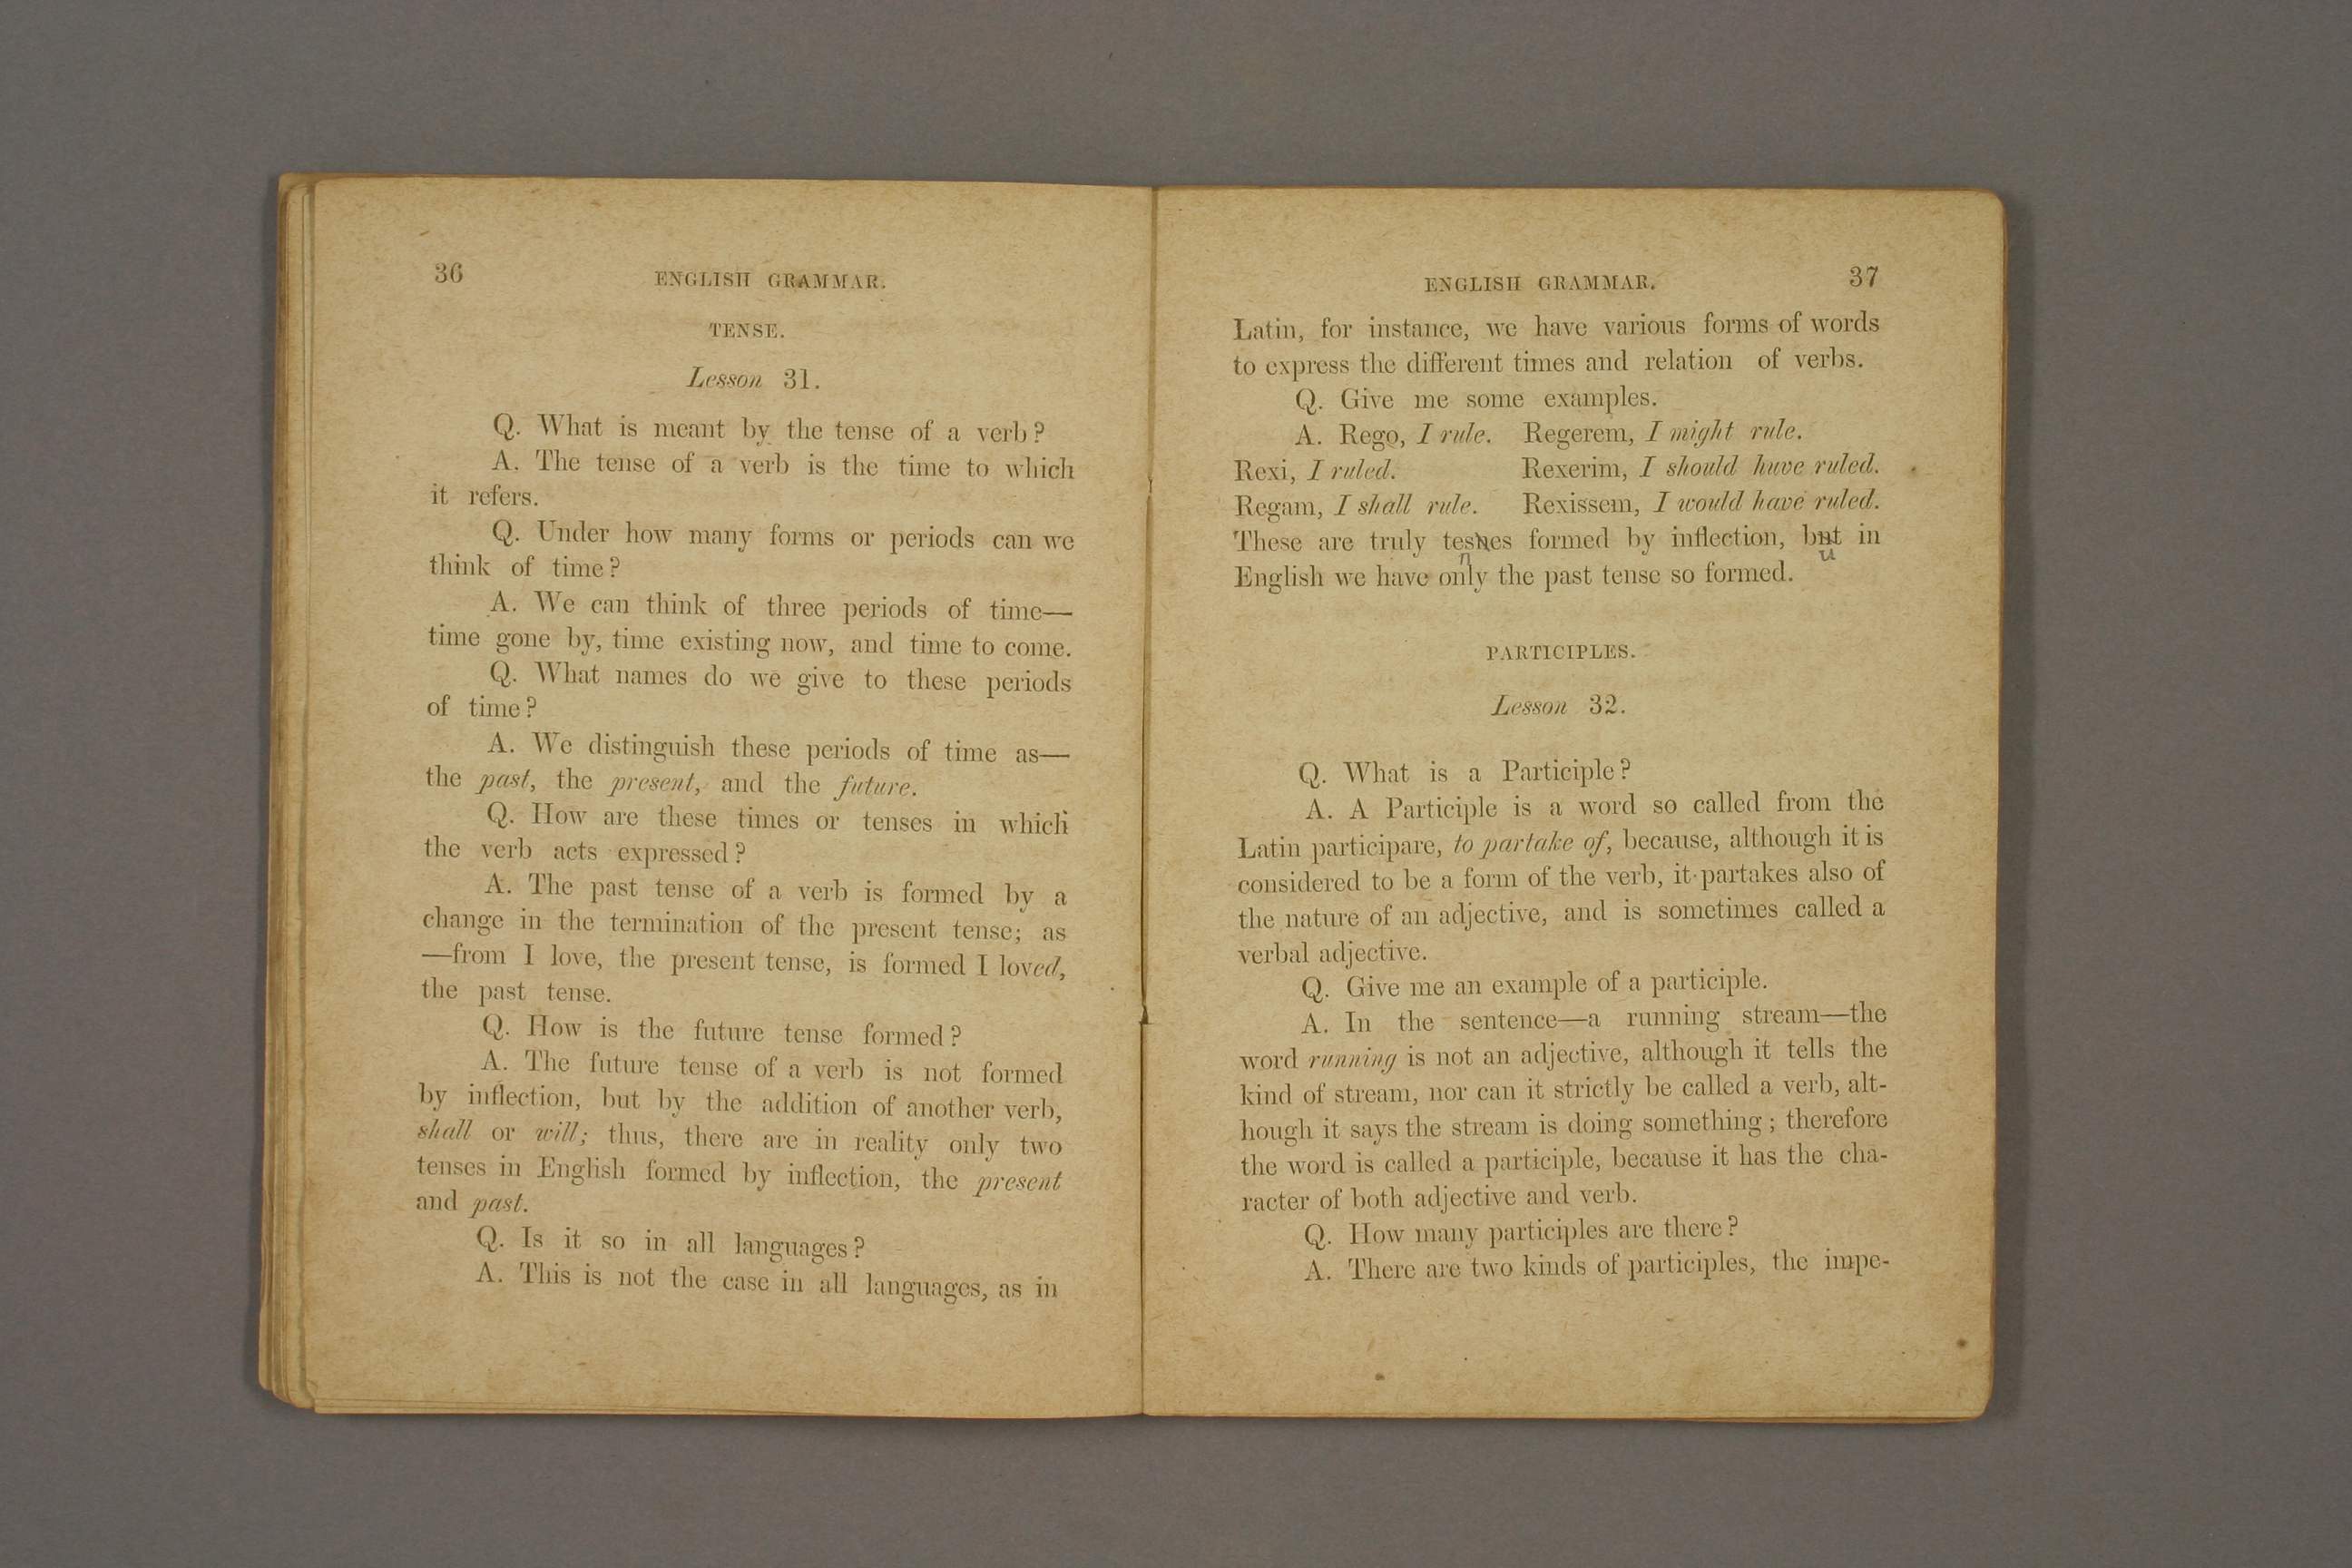 36
ENGLISH GRAMMAR.
TENSE.
Lesson 31.
Q. What is meant by the tense of a verb?
A. The tense of a verb is the time to which
it refers.
Q. Under how many forms or periods can we
think of time?
A. We can think of three periods of time—
time gone by, time existing now, and time to come.
Q. What names do we give to these periods
of time?
A. We distinguish these periods of time as—
the past, the present, and the future.
Q. How are these times or tenses in which
the verb acts expressed?
A. The past tense of a verb is formed by a
change in the termination of the present tense; as
—from I love, the present tense, is formed I loved,
the past tense.
Q. How is the future tense formed?
A. The future tense of a verb is not formed
by inflection, but by the addition of another verb,
shall or will; thus, there are in reality only two
tenses in English formed by inflection, the present
and past.
Q. Is it so in all languages?
A. This is not the case in all languages, as in
ENGLISH GRAMMAR.
37
Latin, for instance, we have various forms of words
to express the different times and relation of verbs.
Q. Give me some examples.
A. Rego, I rule. Regerem, I might rule.
Rexi, I ruled. Rexerim, I should huve ruled.
Regam, I shall rule. Rexissem, I would have ruled.
These are truly tesnes formed by inflection, bnt in
n u
English we have only the past tense so formed.
PARTICIPLES.
Lesson 32.
Q. What is a Participle?
A. A Participle is a word so called from the
Latin participare, to partake of, because, although it is
considered to be a form of the verb, it partakes also of
the nature of an adjective, and is sometimes called a
verbal adjective.
Q. Give me an example of a participle.
A. In the sentence—a running stream—the
word running is not an adjective, although it tells the
kind of stream, nor can it strictly be called a verb, alt-
hough it says the stream is doing something; therefore
the word is called a participle, because it has the cha-
racter of both adjective and verb.
Q. How many participles are there?
A. There are two kinds of participles, the impe-